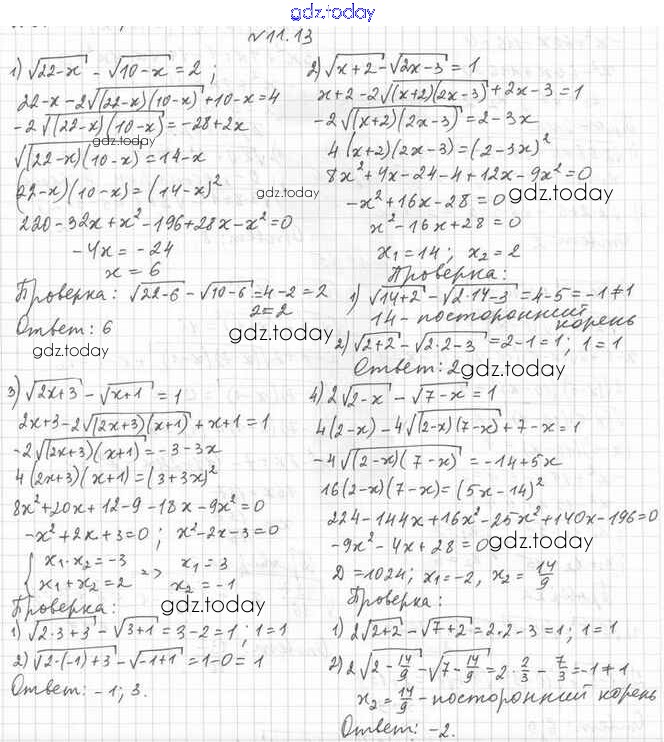 gdz.today
№11.13
1) √(22-x) - √(10-x) = 2 ;
22-x-2√((22-x)(10-x))+10-x=4
-2√((22-x)(10-x))=-28+2x
gdz.today
√((22-x)(10-x))=14-x
(22-x)(10-x)=(14-x)²
220-32x+x²-196+28x-x²=0
-4x=-24
x=6
Проверка: √(22-6)-√(10-6)=4-2=2
2=2
Ответ: 6
gdz.today
2) √(x+2)-√(2x-3)=1
x+2-2√((x+2)(2x-3))+2x-3=1
-2√((x+2)(2x-3))=2-3x
4(x+2)(2x-3)=(2-3x)²
8x²+4x-24-4+12x-9x²=0
gdz.today
-x²+16x-28=0
gdz.today
x²-16x+28=0
x₁=14; x₂=2
Проверка:
1) √(14+2)-√(2·14-3)=4-5=-1≠1
14-посторонний
корень
gdz.today
2) √(2+2)-√(2·2-3)=2-1=1; 1=1
Ответ: 2
gdz.today
3) √(2x+3)-√(x+1)=1
2x+3-2√((2x+3)(x+1))+x+1=1
-2√((2x+3)(x+1))=-3-3x
4(2x+3)(x+1)=(3+3x)²
8x²+20x+12-9-18x-9x²=0
-x²+2x+3=0; x²-2x-3=0
{x₁·x₂=-3 => x₁=3
x₁+x₂=2 x₂=-1
Проверка:
gdz.today
1) √(2·3+3)-√(3+1)=3-2=1; 1=1
2) √(2·(-1)+3)-√(-1+1)=1-0=1
Ответ: -1; 3.
4) 2√(2-x)-√(7-x)=1
4(2-x)-4√((2-x)(7-x))+7-x=1
-4√((2-x)(7-x))=-14+5x
16(2-x)(7-x)=(5x-14)²
224-144x+16x²-25x²+140x-196=0
-9x²-4x+28=0
gdz.today
D=1024; x₁=-2, x₂=14/9
Проверка:
1) 2√(2+2)-√(7+2)=2·2-3=1; 1=1
2) 2√(2-14/9)-√(7-14/9)=2·2/3-7/3=-1≠1
x₂=14/9-посторонний корень
Ответ: -2.